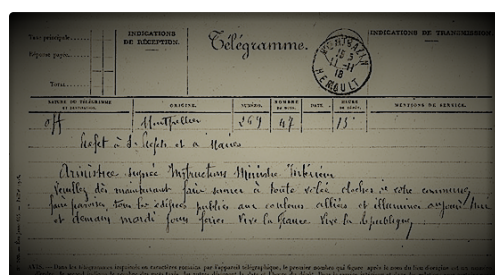 Taxe principale
Réponse payée
Total
INDICATIONS
DE RÉCEPTION.
Télégramme.
INDICATIONS DE TRANSMISSION
11-11
18
HERAULT
NATURE DU TÉLÉGRAMME
ORIGINE.
NUMÉRO.
NOMBRE
DE MOTS.
DATE.
HEURE
DE DÉPÔT.
MENTIONS DE SERVICE.
Off Montpellier 249 47 15
Préfet à S. Préfets et à Maires
Armistice signée Instructions Ministre Intérieur
Veuillez dès maintenant faire sonner à toute volée cloches de votre commune
faire pavoiser tous les édifices publics aux couleurs alliées et illuminer aujourd'hui
et demain mardi jours fériés Vive la France Vive la république